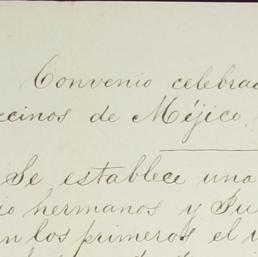 Convenio celebrad
ecinos de Méjico.
Se establece una
io hermanos y Su
an los primeros el v